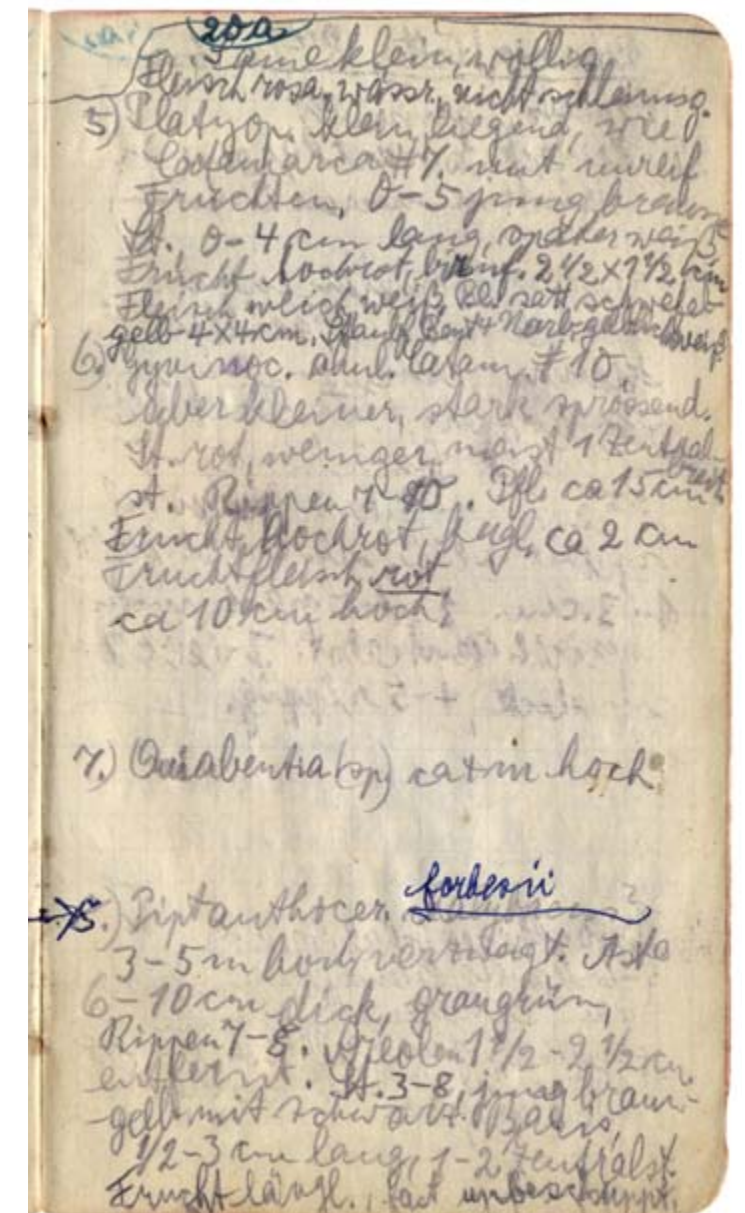 20a
Same klein, wollig
Fleisch rosa, wässr., nicht schleimig.
5) Platyop. klein, liegend, wie
Catamarca #7. mit unreif
Früchten, 0-5 jung braune
St. 0-4 cm lang, später weiß,
Frucht hochrot, birnf. 2 1/2 x 1 1/2 cm
Fleisch weich weiß, Bl. satt schwefel-
gelb 4x4 cm, Staubf. Beut + Narb. gelblichweiß
6.) Gymnoc. ähnl. Catam. #10,
aber kleiner, stark sprossend.
St. rot, weniger, meist 1 Zentral-
st. Rippen 7-10. Pfl. ca 15 cm breit
Frucht, hochrot, kugl. ca 2 cm
Fruchtfleisch rot
ca 10 cm hoch,
7.) Quiabentia (sp.) ca m hoch
forbesii
Piptanthocer.
3-5 m hoch, verzweigt. Äste
6-10 cm dick, graugrün,
Rippen 7-8. Areolen 1 1/2 - 2 1/2 cm
entfernt. St. 3-8, jung braun-
gelb mit schwarz. Basis,
1/2-3 cm lang, 1-2 Zentralst.
Frucht längl., fast unbeschuppt.